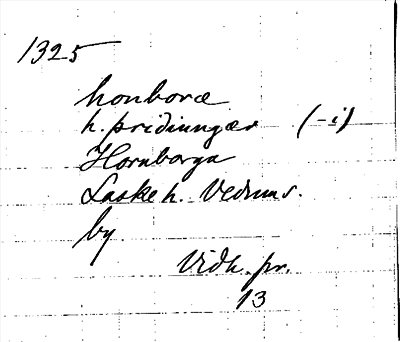 1325
honboræ
h. þriðiungær (-i)
Hornborga
Laske h. Vedums.
by.
Vidh. pr.
13